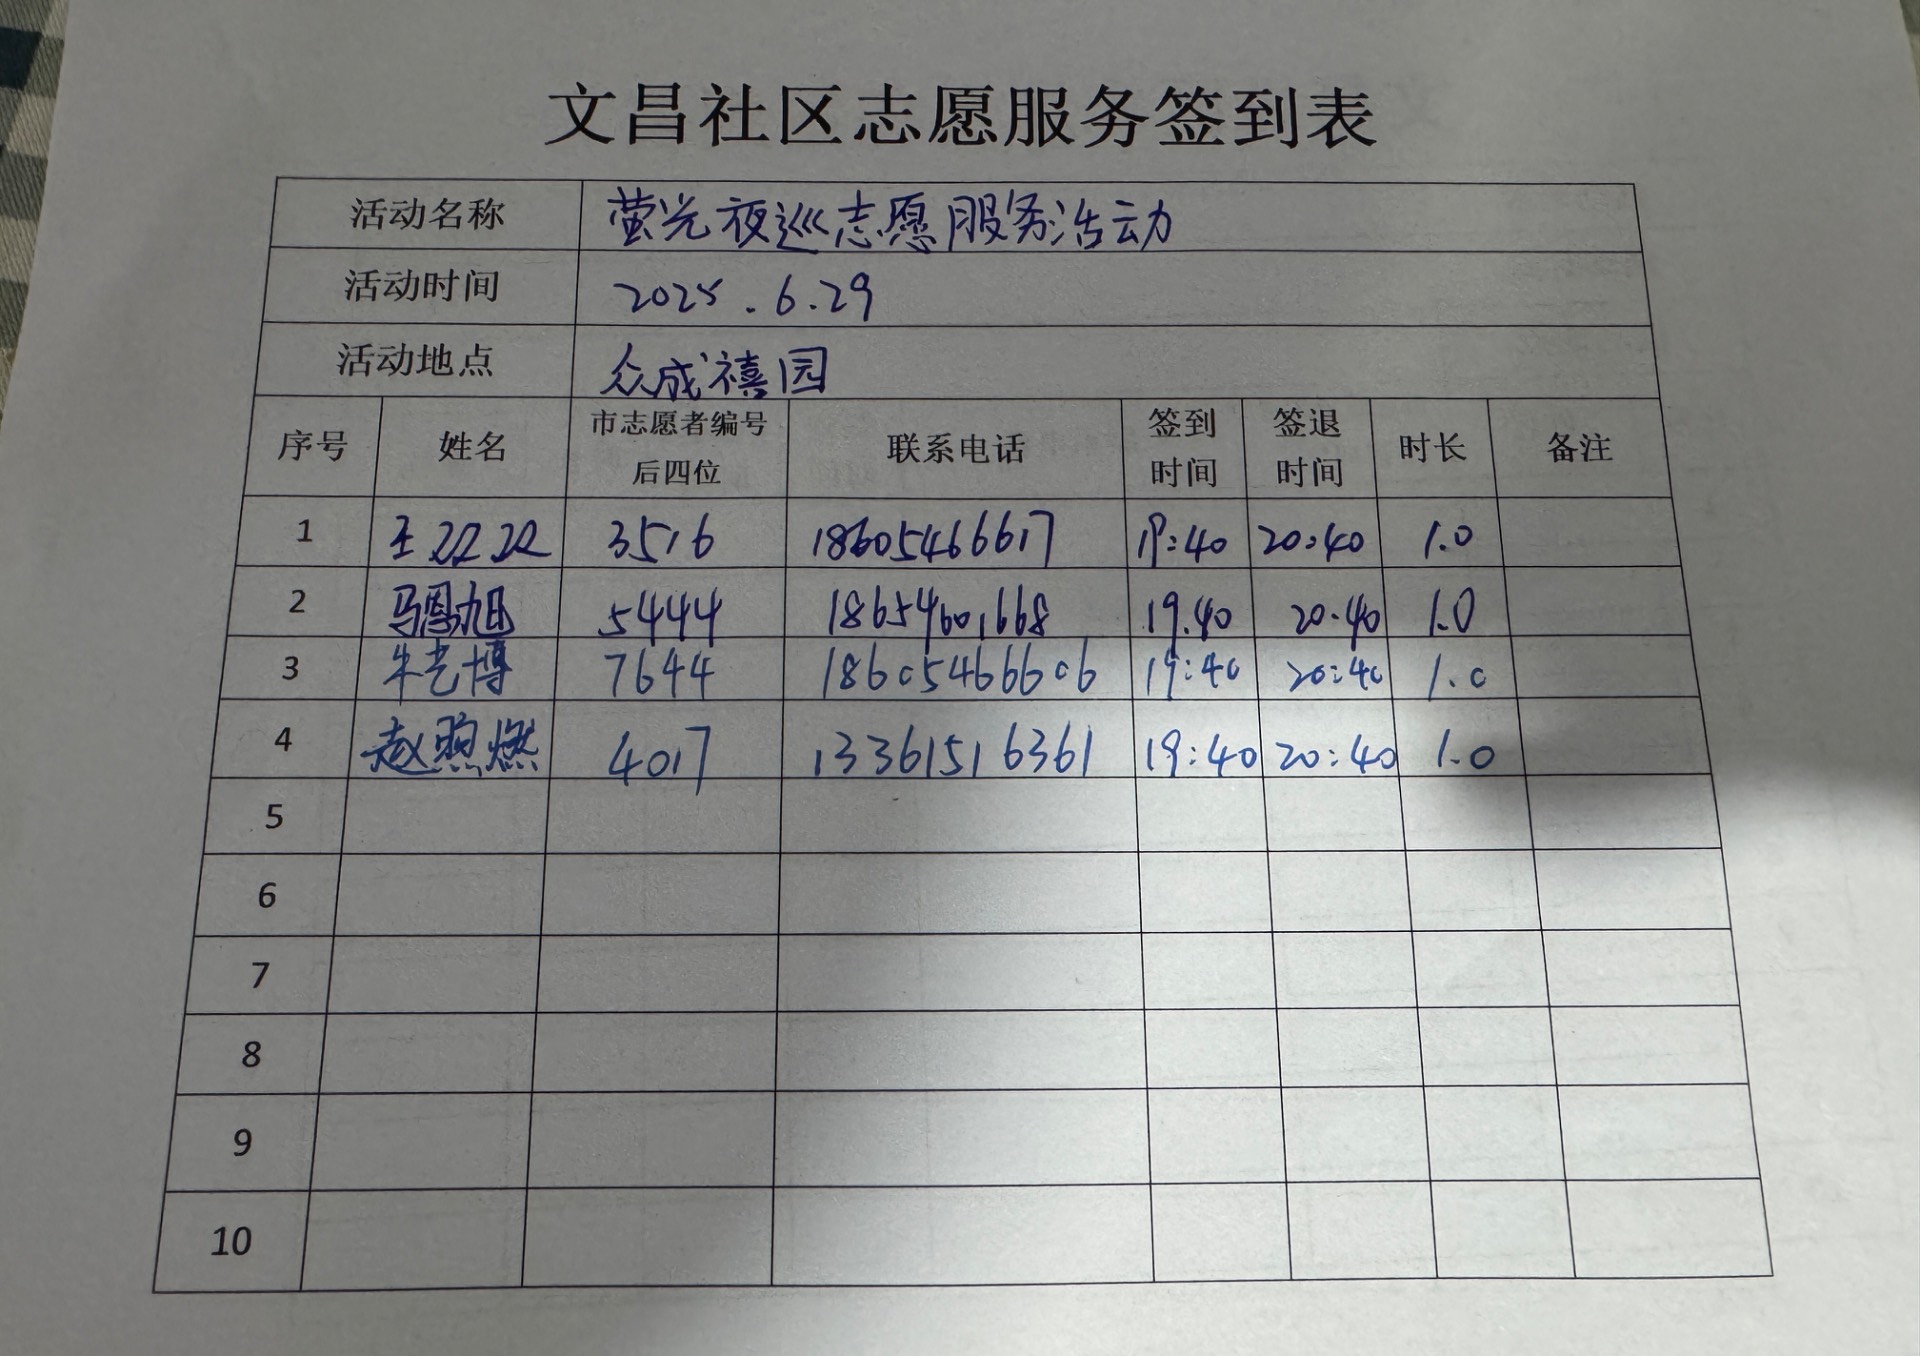 文昌社区志愿服务签到表
活动名称 萤光夜巡志愿服务活动
活动时间 2025.6.29
活动地点 众成禧园
序号 姓名 市志愿者编号后四位 联系电话 签到时间 签退时间 时长 备注
1 王 3516 18605466617 19:40 20:40 1.0
2 马恩旭 5444 18654601668 19.40 20.40 1.0
3 牛艺博 7644 18605466606 19:40 20:40 1.0
4 赵煦燃 4017 13361516361 19:40 20:40 1.0
5
6
7
8
9
10